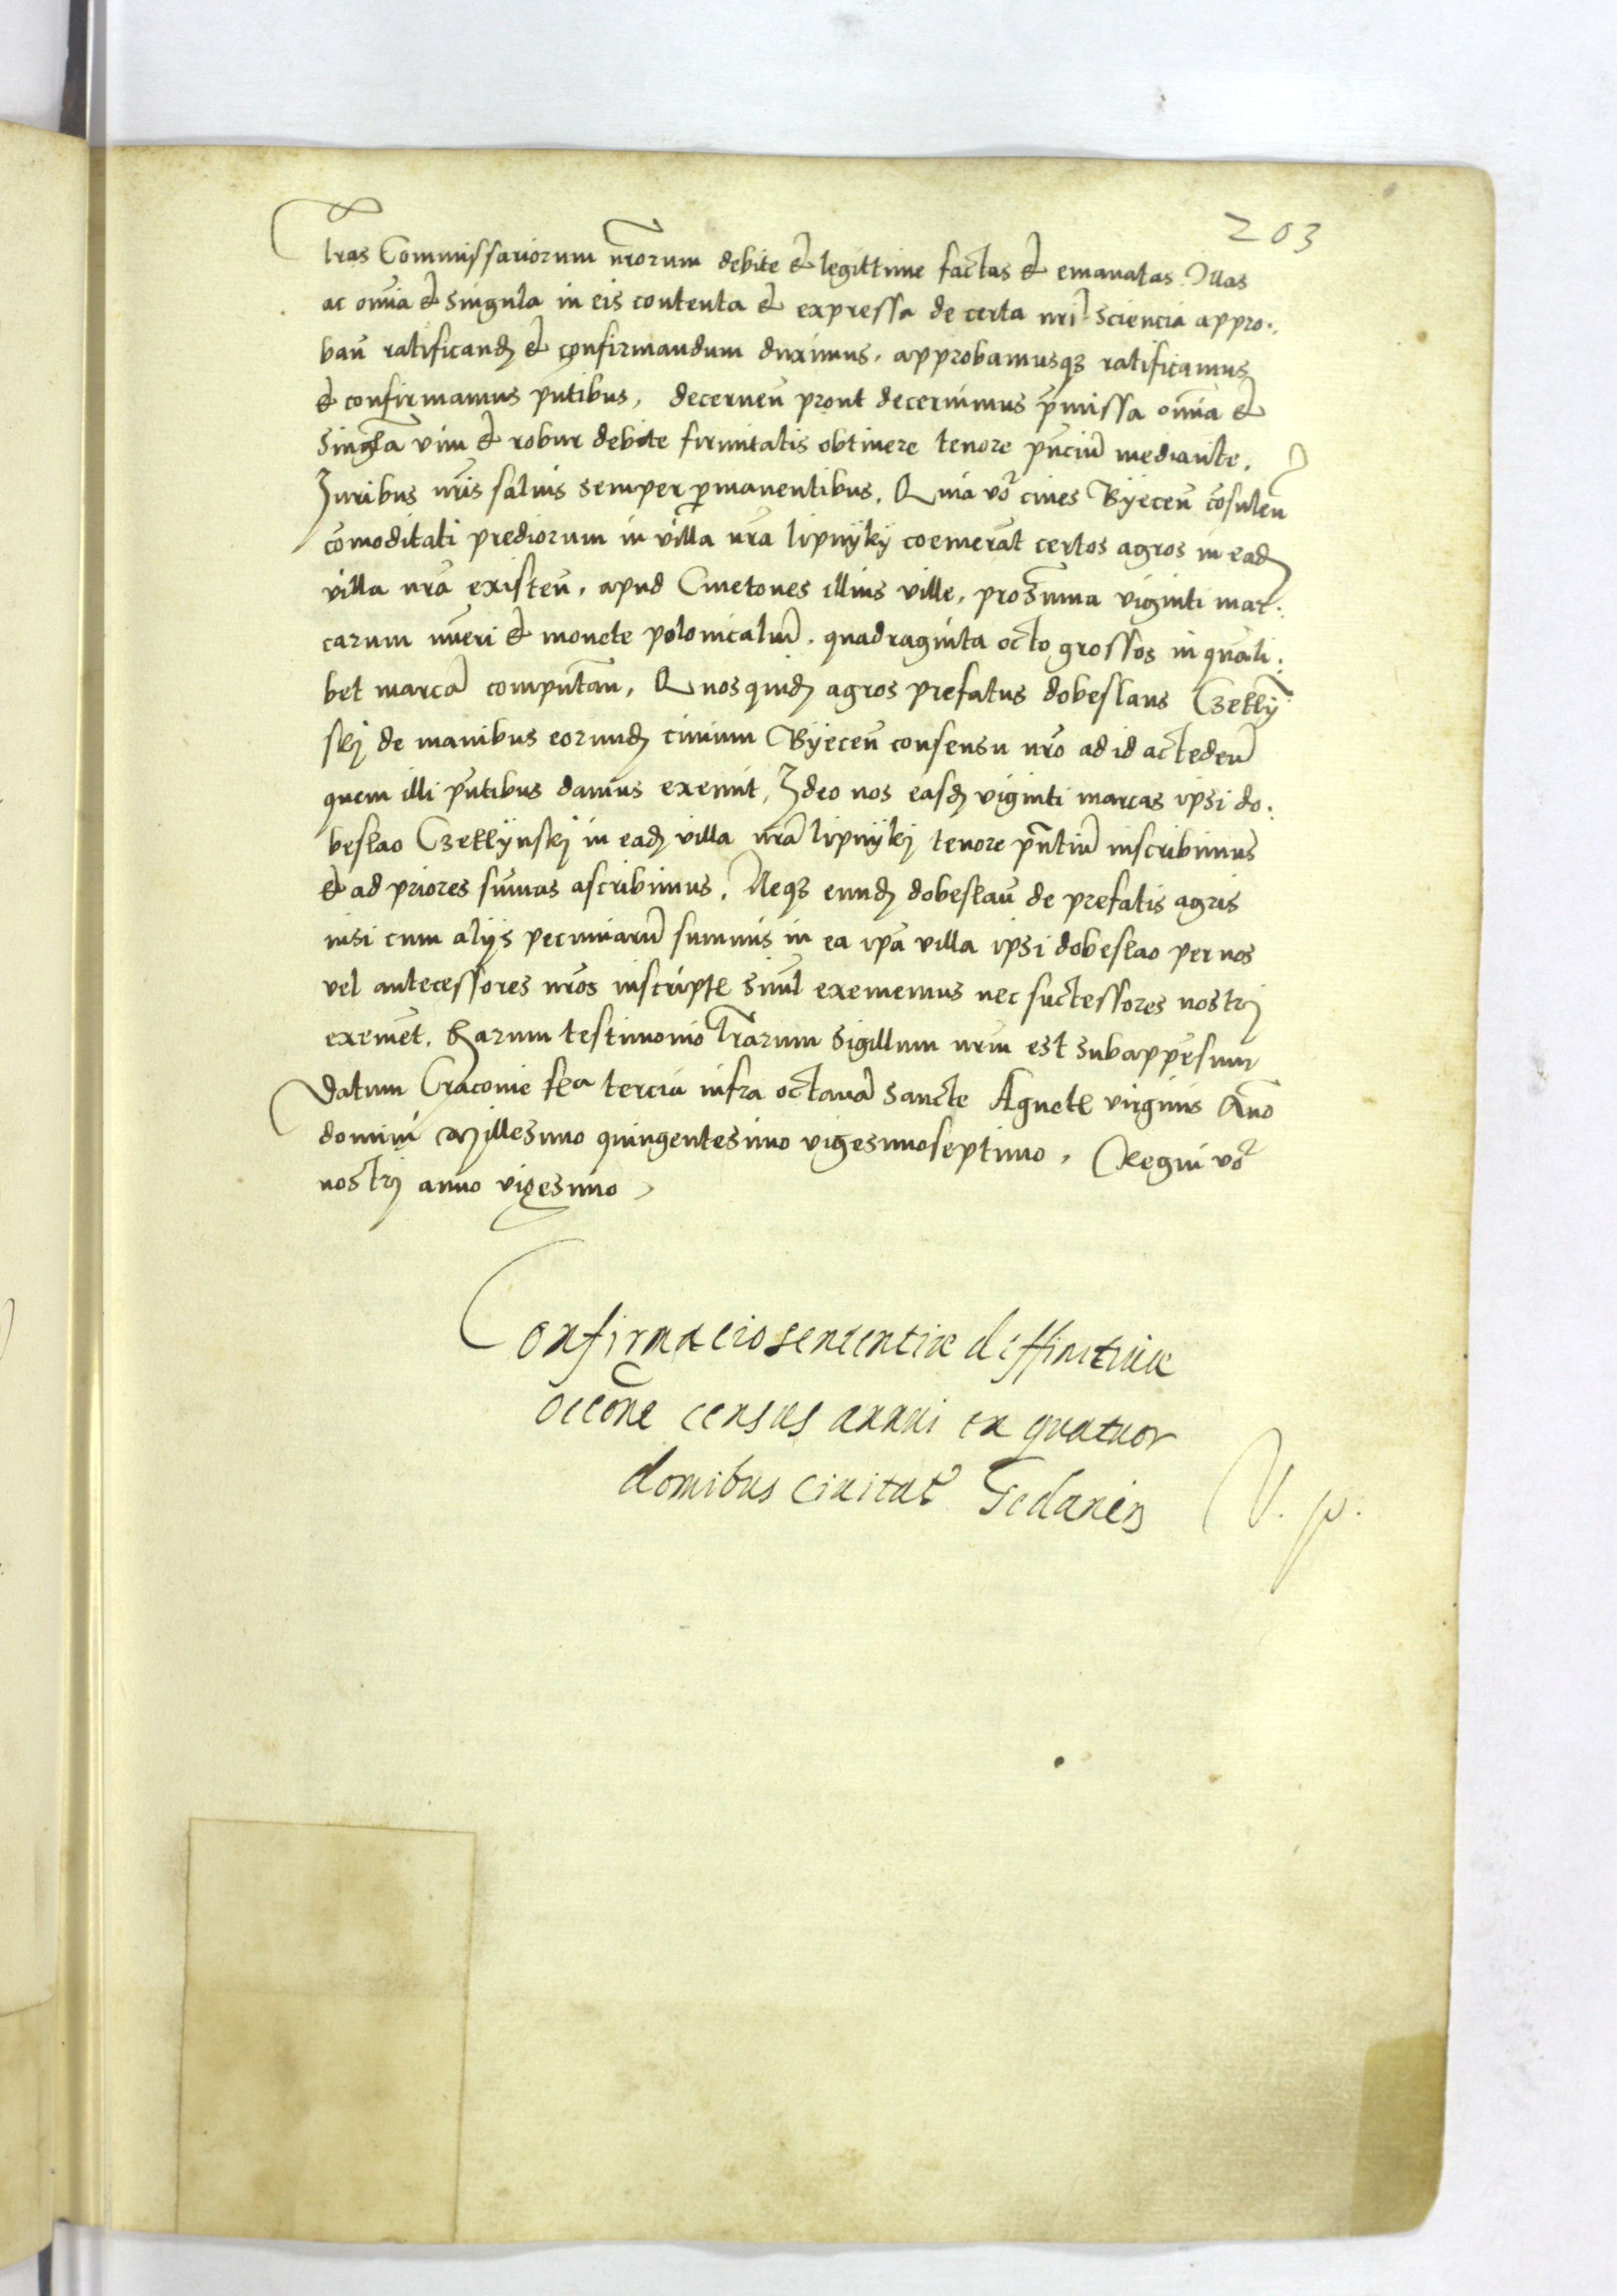 203
lr̃as Commissariorum nr̃orum debite et legittime factas et emanatas Illas
ac om̃ia et singula in eis contenta et expressa de certa nr̃i sciencia appro:
ban̄ ratificand̃ et confirmandum duximus, approbamusqz ratificamus
et confirmamus pñtibus, decernen̄ prout decernimus p̃missa om̃ia et
singl̃a vim et robur debite firmitatis obtinere tenore pñciũ mediante,
Juribus nr̃is saluis semper p̃manentibus, Quia vo᷑ ciues Byecen̄ cõsulen̄
cõmoditati prediorum in villa nr̃a lipnyky coemerãt certos agros in ead̃
villa nr̃a existen̄, apud Cmetones illius ville, pro sum̃a viginti mar:
carum nũeri et monete polonicaliũ, quadraginta octo grossos in quali:
bet marcã computan̄, Quos quid̃ agros prefatus dobeslaus Czełỹ
skj de manibus eorund̃ ciuium Byecen̄ consensu nr̃o ad id acceden̄
quem illi pñtibus damus exemit, Ideo nos easd̃ viginti marcas ipsi do:
beslao Czełłynskj in ead̃ villa nr̃a lipnykj tenore pñtiũ inscribimus
et ad priores sum̃as ascribimus, Neqz eund̃ dobeslaũ de prefatis agris
nisi cum alijs pecuniarũ summis in ea ip̃a villa ipsi dobeslao per nos
vel antecessores nr̃os inscripte sim̃l exememus nec successores nostrj
exemẽt, Harum testimonio lr̃arum sigillum nr̃m est subappensum
Datum Cracouie fe͛a tercia infra octauã sancte Agnetẽ virginis Anno
dominj Millesimo quingentesimo vigesimoseptimo, Regni vo᷑
nostrj anno vigesimo
Confirmacio sententiæ diffinitiuæ
occõne census annui ex quatuor
domibus ciuitat᷑ Gedanen̄ V. p.